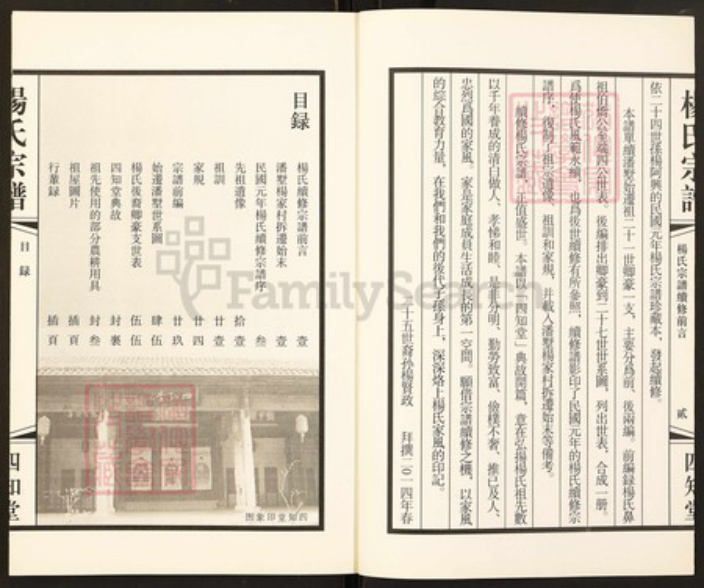 楊氏宗譜
楊氏宗譜續修前言
貳
四知堂
依二十四世孫楊阿興的民國元年楊氏宗譜珍藏本，發起續修。
本譜單續潘墅始遷祖二十一世卿豪一支，主要分爲前、後兩編。前編録楊氏鼻
祖伯僑公至端四公世表，後編排出卿豪到二十七世世系圖，列出世表，合成一册。
爲使楊氏風範永續，也爲後世續修有所參照，續修譜影印了民國元年的楊氏續修宗
譜序，復制了祖宗遺像、祖訓和家規，并載入潘墅楊家村拆遷始末等備考。
續修楊氏宗譜，正值盛世。本譜以「四知堂」典故開篇，意在弘揚楊氏祖先數
以千年養成的清白做人、孝悌和睦、是非分明、勤勞致富、儉樸不奢、推己及人、
忠烈爲國的家風。家是家庭成員生活成長的第一空間。願借宗譜續修之機，以家風
的綜合教育力量，在我們和我們的後代子孫身上，深深烙上楊氏家風的印記。
二十五世裔孫楊賢政 拜撰二〇一四年春
目録
楊氏續修宗譜前言 壹
潘墅楊家村拆遷始末 壹
民國元年楊氏續修宗譜序 叁
先祖遺像 拾壹
祖訓 廿壹
家規 廿四
宗譜前編 廿玖
始遷潘墅世系圖 肆伍
楊氏後裔卿豪支世表 伍伍
四知堂典故 封裏
祖先使用的部分農耕用具 封叁
祖屋圖片 插頁
行輩録 插頁
四知堂印象圖
楊氏宗譜
目録
四知堂
FamilySearch